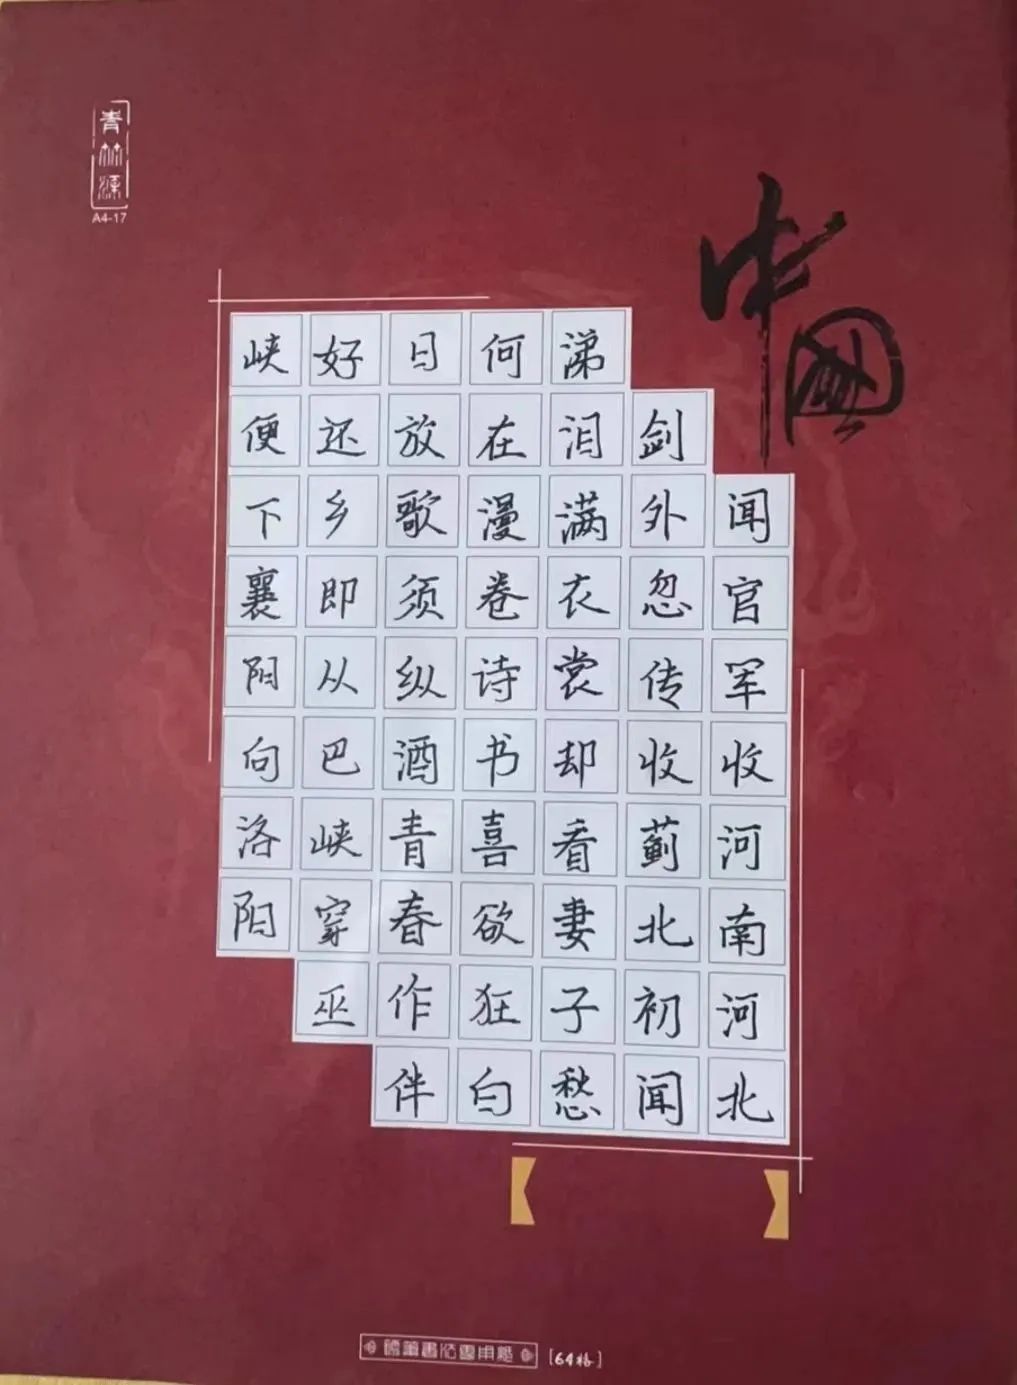 中國
闻官军收河南河北
剑外忽传收蓟北初闻
涕泪满衣裳却看妻子愁
何在漫卷诗书喜欲狂白
日放歌须纵酒青春作伴
好还乡即从巴峡穿巫
峡便下襄阳向洛阳
A4-17
硬筆書法專用紙
[64格]